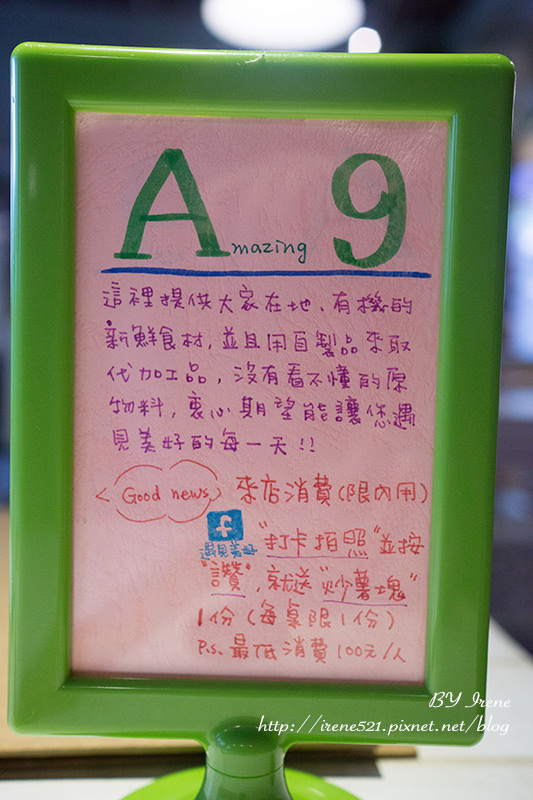 Amazing 9
這裡提供大家在地、有機的
新鮮食材,並且用自製品來取
代加工品,沒有看不懂的原
物料,衷心期望能讓您遇
見美好的每一天!!
< Good news > 來店消費(限內用)
f "打卡拍照"並按
遇見美好
"讚",就送"炒薯塊"
1份(每桌限1份)
P.S.最低消費100元/人
BY Irene
http://irene521.pixnet.net/blog